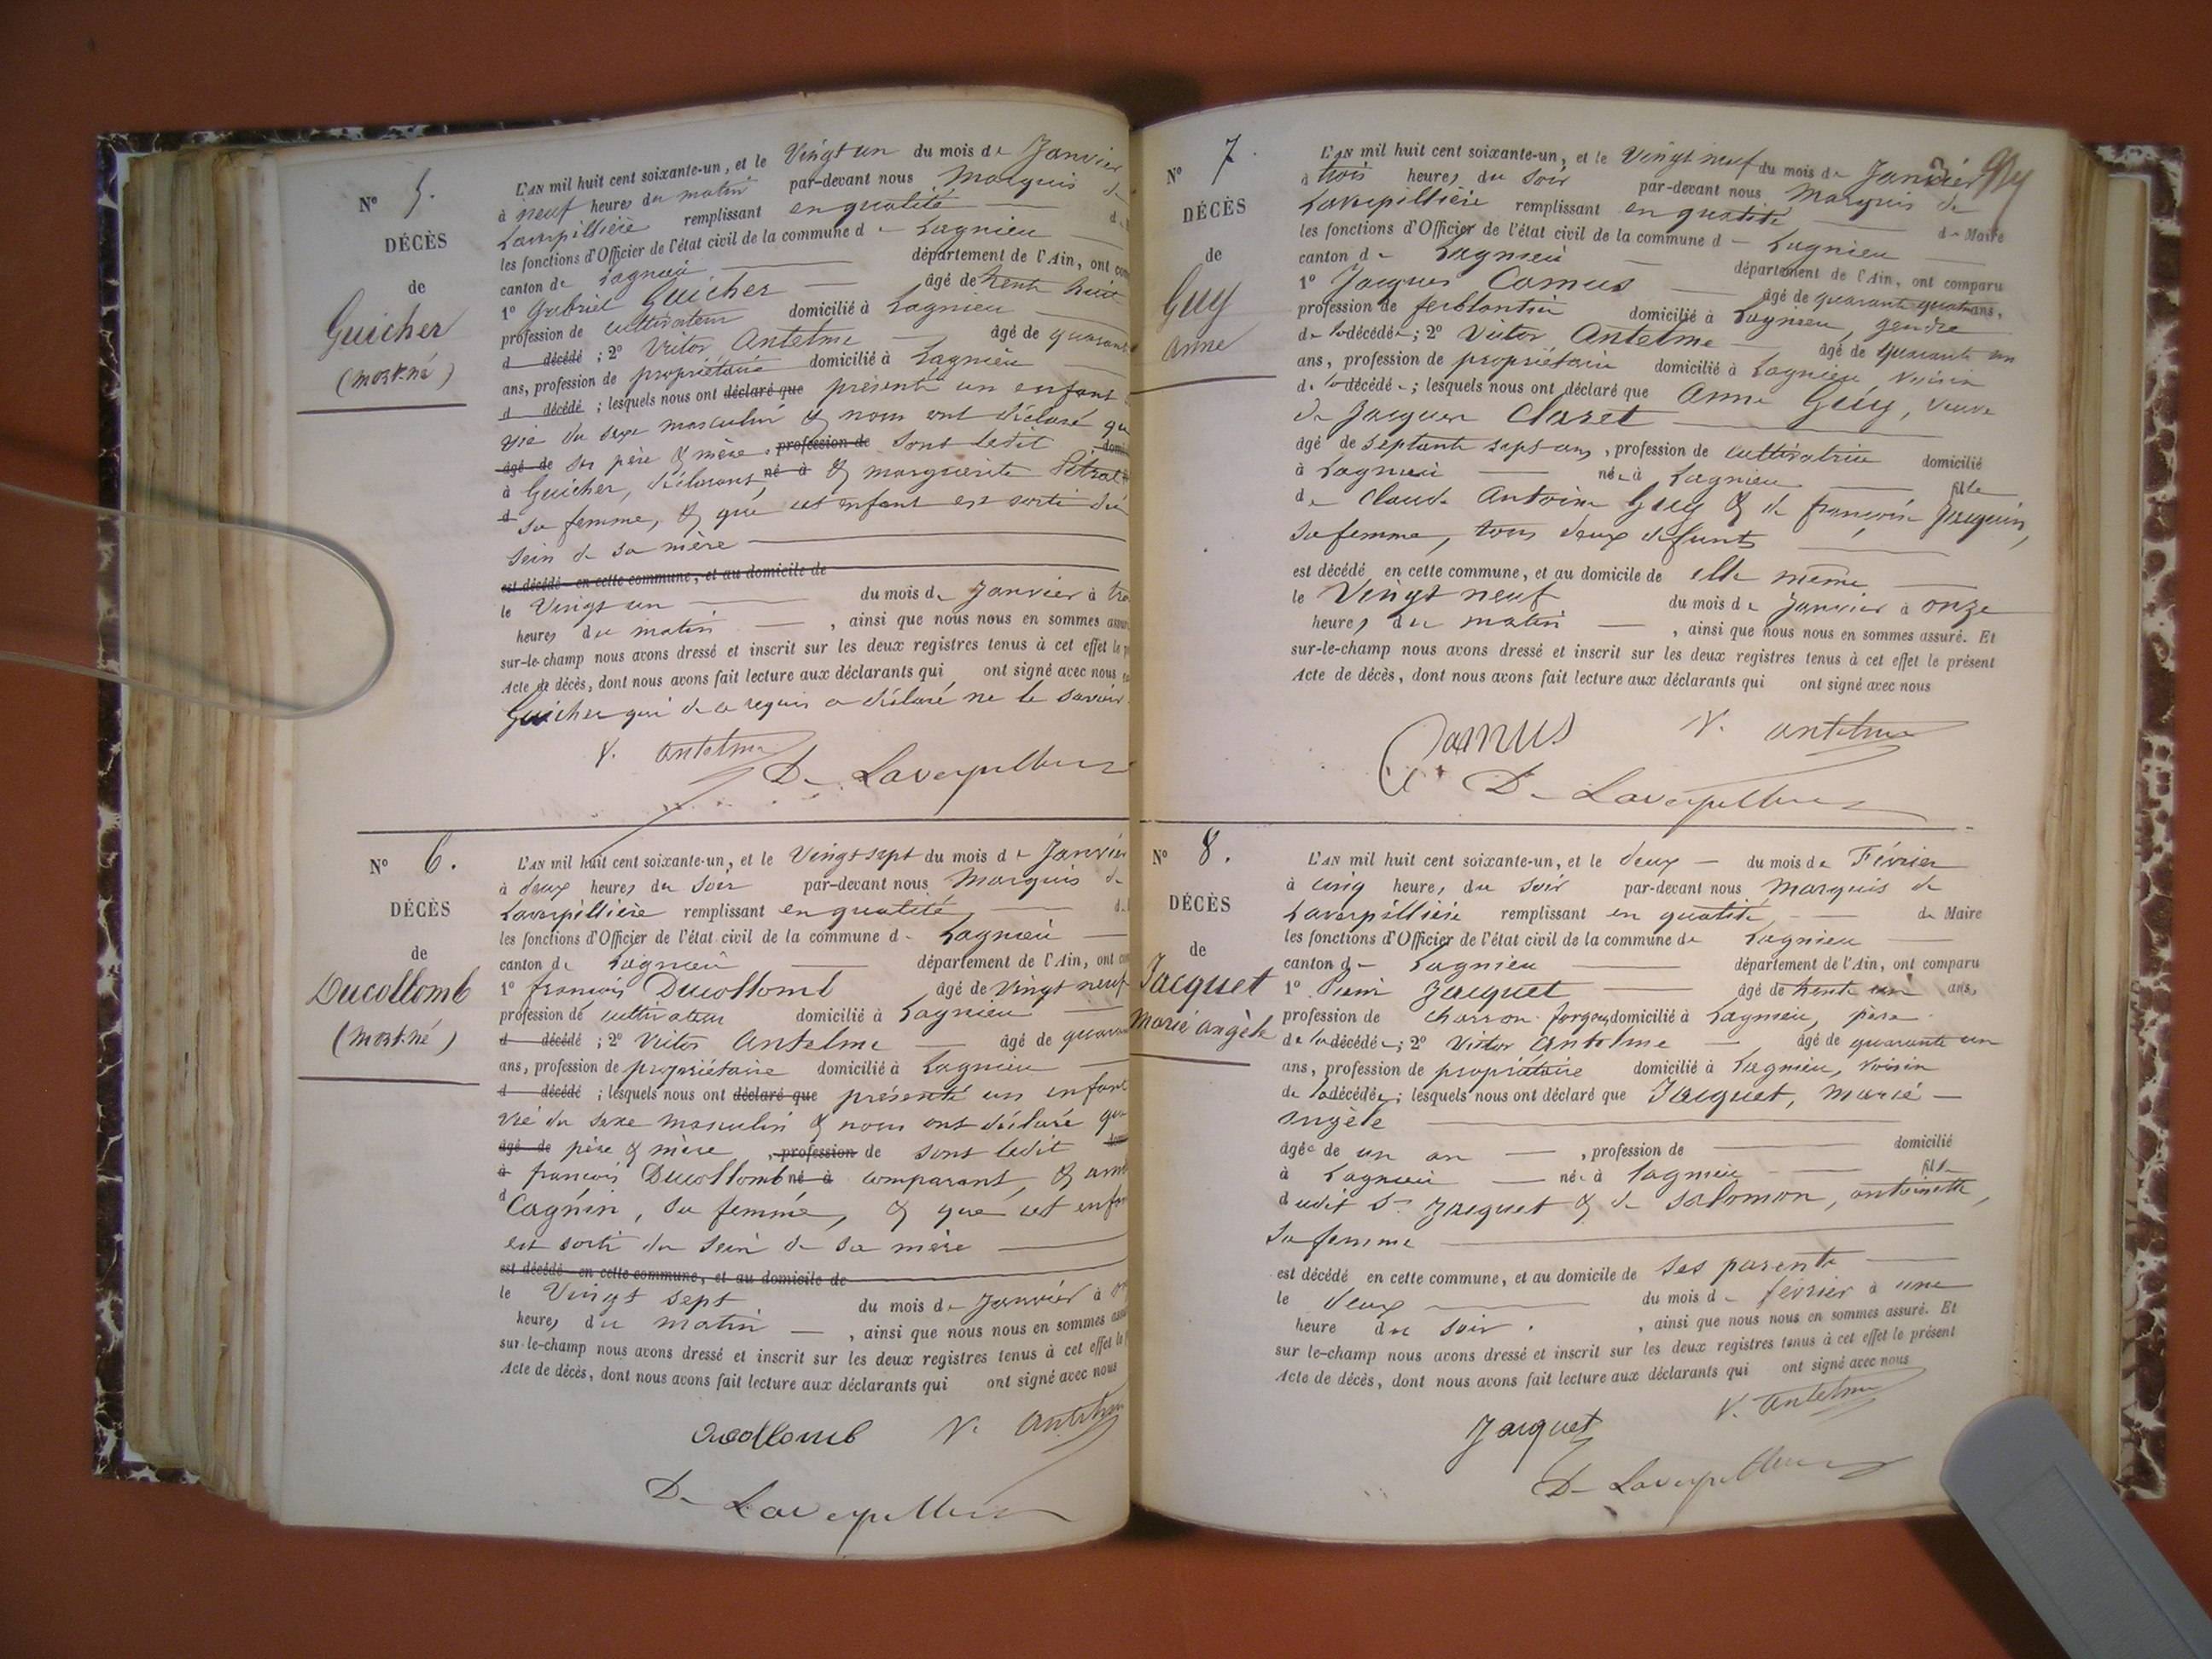 N° 5.
DÉCÈS
de
Guicher
(mort-né)
L'AN mil huit cent soixante-un, et le Vingt un du mois de Janvier
à neuf heures du matin par-devant nous Marquis de
Laverpillière remplissant en qualité
les fonctions d'Officier de l'état civil de la commune de Lagnieu
canton de Lagnieu département de l'Ain, ont
1° Gabriel Guicher âgé de trente huit
profession de cultivateur domicilié à Lagnieu
d décédé ; 2° Victor Antelme âgé de
ans, profession de propriétaire domicilié à Lagnieu
d décédé ; lesquels nous ont déclaré que présenté un enfant
vie du sexe masculin & nous ont déclaré
âgé de ses père & mère, profession de sont ledit
à Guicher, déclarant, né à & marguerite
d sa femme, & que cet enfant est sorti du
sein de sa mère
est décédé en cette commune, et au domicile de
le Vingt un du mois de Janvier à
heures du matin , ainsi que nous nous en sommes
sur-le-champ nous avons dressé et inscrit sur les deux registres tenus à cet effet le
Acte de décès, dont nous avons fait lecture aux déclarants qui ont signé avec nous
Guicher qui de ce requis a déclaré ne le savoir
V. antelme
De Laverpilliere
N° 6.
DÉCÈS
de
Ducollomb
(mort-né)
L'AN mil huit cent soixante-un, et le Vingt sept du mois de Janvier
à deux heures du soir par-devant nous Marquis de
Laverpillière remplissant en qualité
les fonctions d'Officier de l'état civil de la commune d Lagnieu
canton de Lagnieu département de l'Ain, ont
1° françois Ducollomb âgé de vingt neuf
profession de cultivateur domicilié à Lagnieu
d décédé ; 2° Victor Antelme âgé de
ans, profession de propriétaire domicilié à Lagnieu
d décédé ; lesquels nous ont déclaré que présenté un enfant
vie du sexe masculin & nous ont déclaré que
âgé de père & mère , profession de sont ledit
à françois Ducollomb né à comparant, &
d Cagnin, sa femme, & que cet
est sorti du sein de sa mère
est décédé en cette commune, et au domicile de
le Vingt sept du mois de Janvier à
heures du matin , ainsi que nous nous en sommes
sur-le-champ nous avons dressé et inscrit sur les deux registres tenus à cet effet le
Acte de décès, dont nous avons fait lecture aux déclarants qui ont signé avec nous
Ducollomb V. Antelme
De Laverpilliere
N° 7.
DÉCÈS
de
Guy
anne
L'AN mil huit cent soixante-un, et le Vingt neuf du mois de Janvier
à trois heures du soir par-devant nous Marquis de
Laverpillière remplissant en qualité de Maire
les fonctions d'Officier de l'état civil de la commune d Lagnieu
canton de Lagnieu département de l'Ain, ont comparu
1° Jacques Camus âgé de quarante quatre ans,
profession de ferblantier domicilié à Lagnieu, gendre
de la décédée ; 2° Victor Antelme âgé de quarante un
ans, profession de propriétaire domicilié à Lagnieu voisin
de la décédée ; lesquels nous ont déclaré que Anne Guy, veuve
de Jacques Claret
âgé de septante sept ans, profession de cultivatrice domicilié
à Lagnieu née à Lagnieu fille
de Claude Antoine Guy & de françoise Jacquin,
sa femme, tous deux défunts
est décédé en cette commune, et au domicile de elle même
le Vingt neuf du mois de Janvier à onze
heures du matin , ainsi que nous nous en sommes assuré. Et
sur-le-champ nous avons dressé et inscrit sur les deux registres tenus à cet effet le présent
Acte de décès, dont nous avons fait lecture aux déclarants qui ont signé avec nous
Camus V. antelme
De Laverpilliere
N° 8.
DÉCÈS
de
Jacquet
Marie angèle
L'AN mil huit cent soixante-un, et le deux du mois de Février
à cinq heures du soir par-devant nous Marquis de
Laverpillière remplissant en qualité de Maire
les fonctions d'Officier de l'état civil de la commune de Lagnieu
canton de Lagnieu département de l'Ain, ont comparu
1° Pierre Jacquet âgé de trente un ans,
profession de charron-forgeron domicilié à Lagnieu, père
de la décédée ; 2° Victor Antelme âgé de quarante un
ans, profession de propriétaire domicilié à Lagnieu, voisin
de la décédée ; lesquels nous ont déclaré que Jacquet, Marie
angèle
âgée de un an , profession de domicilié
à Lagnieu née à Lagnieu fille
dudit Sr Jacquet & de Salomon, antoinette,
sa femme
est décédé en cette commune, et au domicile de ses parents
le deux du mois de février à une
heure du soir. , ainsi que nous nous en sommes assuré. Et
sur le-champ nous avons dressé et inscrit sur les deux registres tenus à cet effet le présent
Acte de décès, dont nous avons fait lecture aux déclarants qui ont signé avec nous
Jacquet V. Antelme
De Laverpilliere